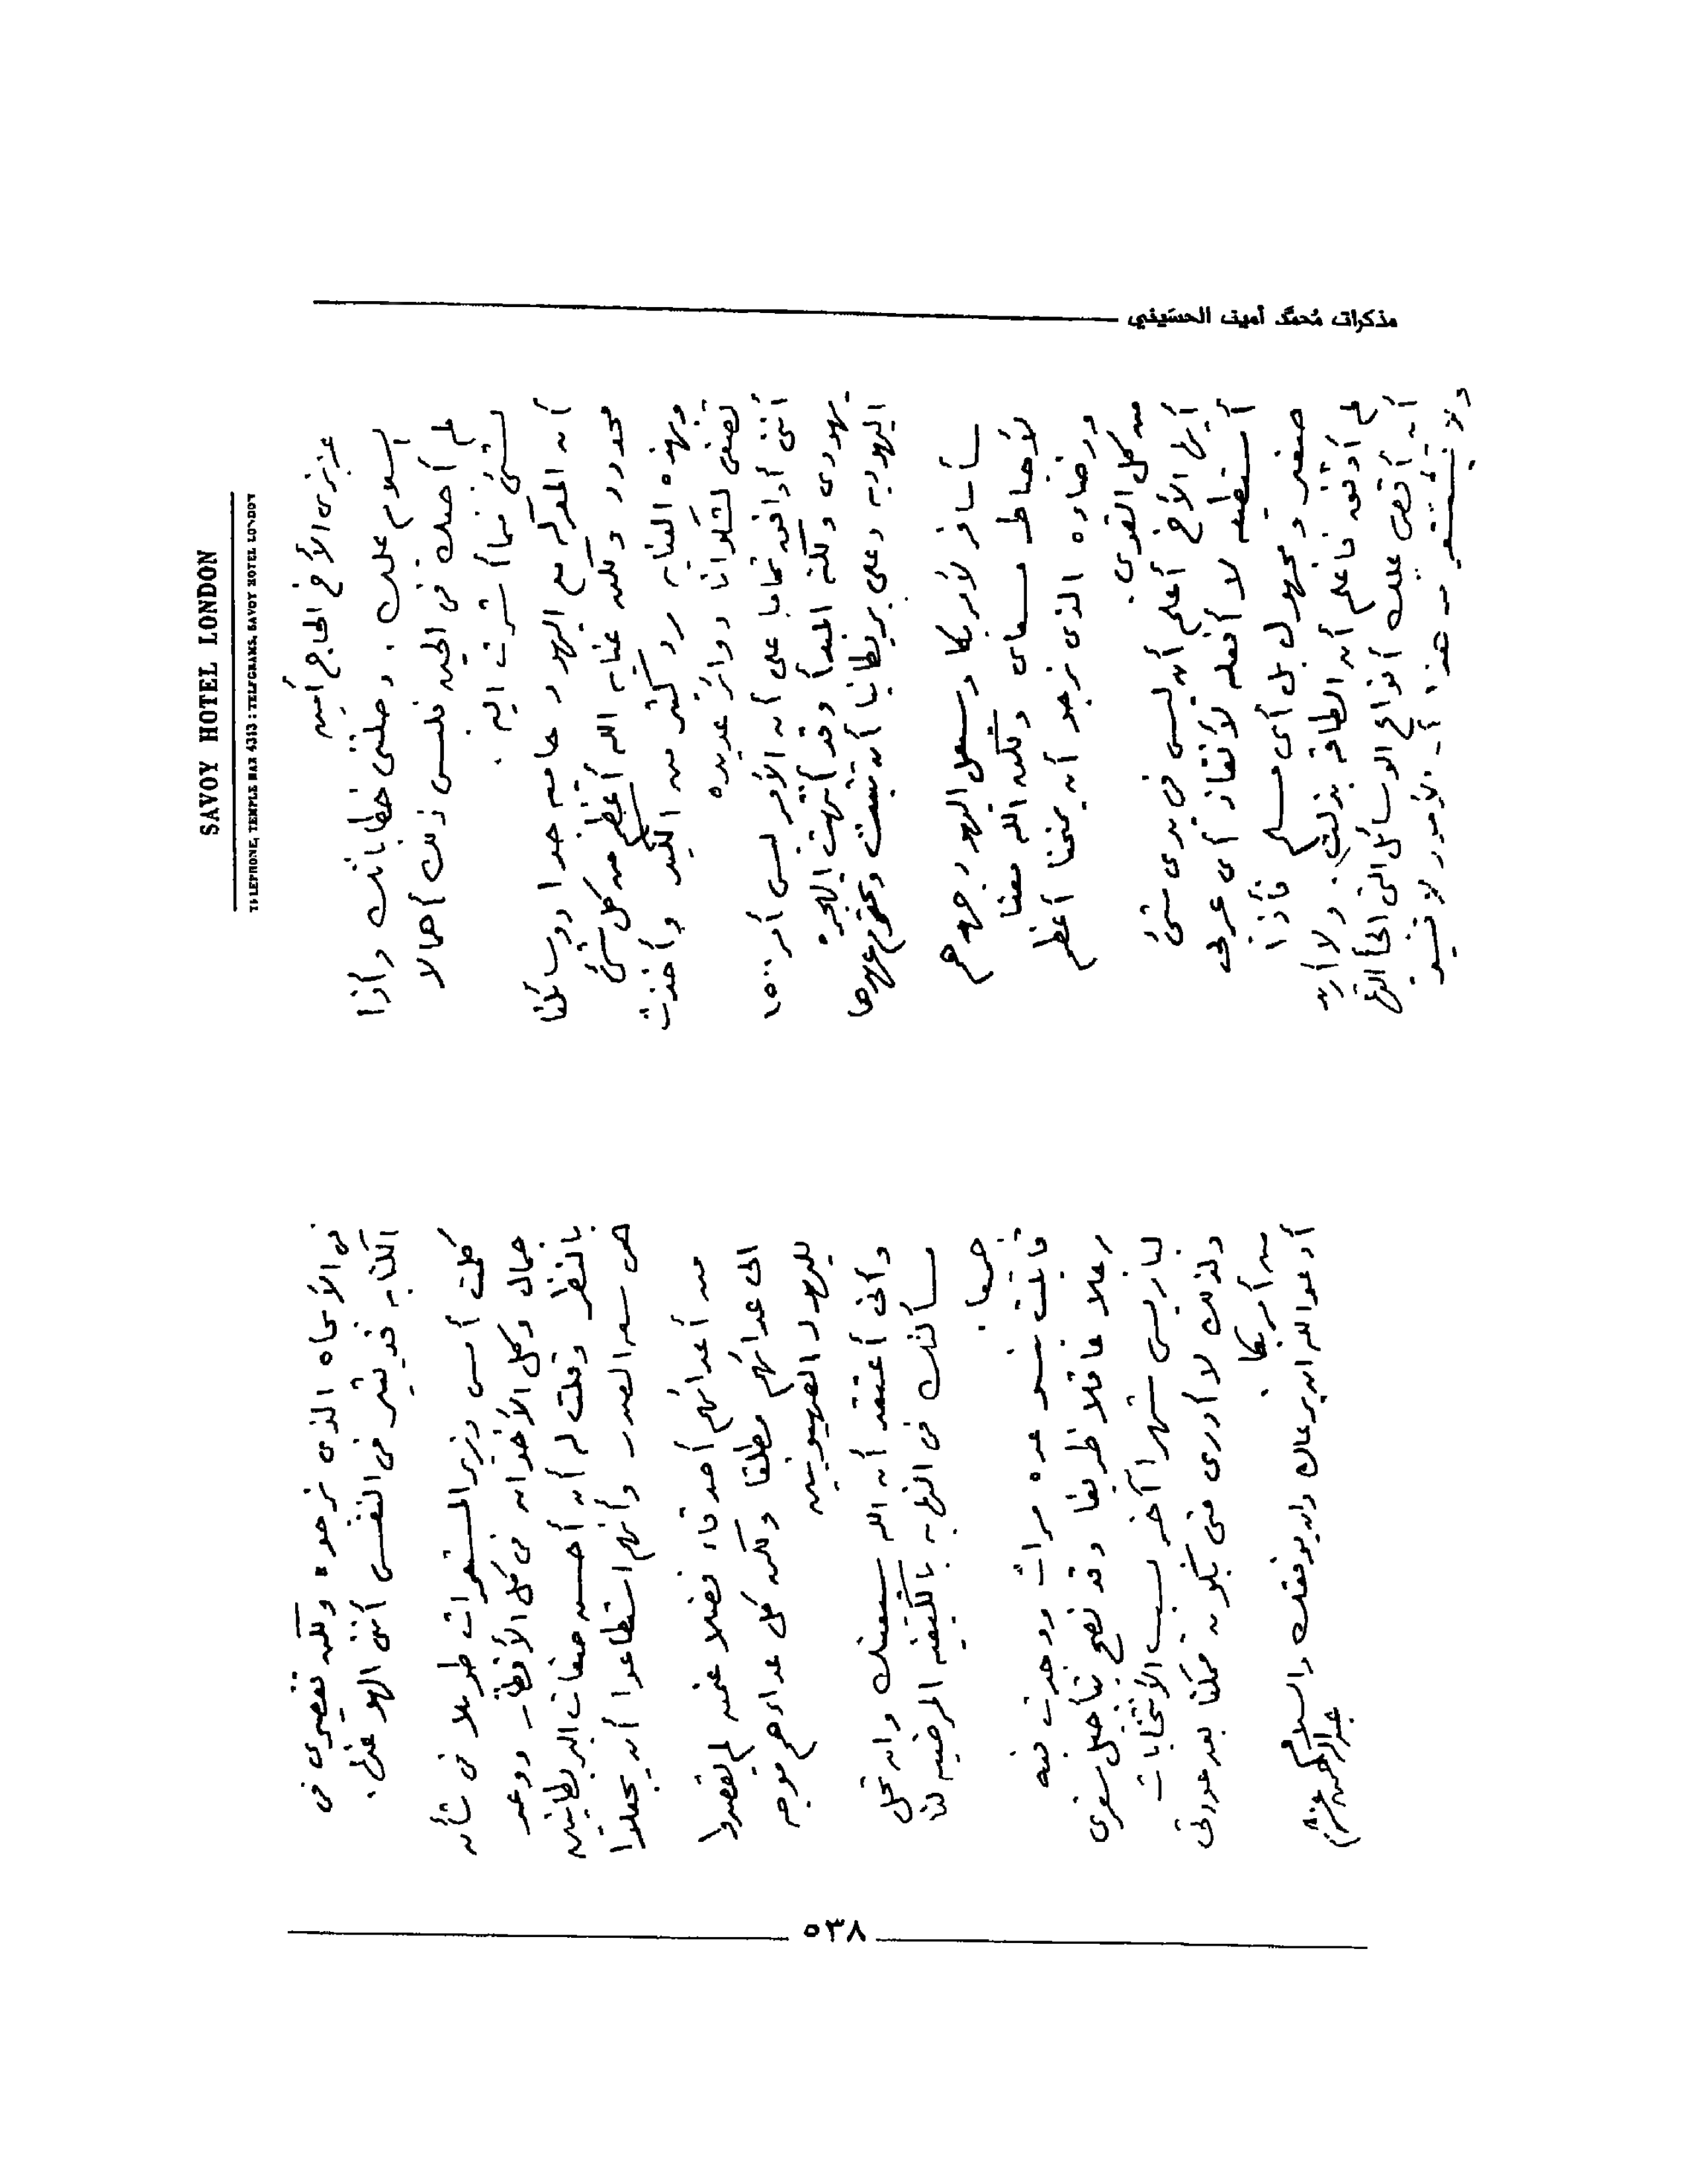 مذكرات مُحمّد أمين الحسَيني
SAVOY HOTEL LONDON
TELEPHONE, TEMPLE BAR 4343 : TELEGRAMS, SAVOY HOTEL LONDON
عزيزى الأخ الحاج أمين
السلام عليك . وصلتنى خطاباتك وأذا
لم أجبك فى الحين فليس ذلك أهمالا
لشئ مما أشرت اليه .
أن المعركه مع اليهود حاميه جدا ووسائلنا
محدوده ولكن عنايه الله أعظم من كل شئ
وبهذه العنايه رد كثير من الكيد وأخذت
تصغى لشكوانا دوائر عديده
أننى أوافق تماما على أن الأمر ليس أمر ١٥٠٠
يهودى ولكنه المبدأ وقد أنتهت الهجره
اليهوديه وعلى بريطانيا أن تثبت وتحترم عهدها
سأسافر لأمريكا وسيعمل اليهود جهدهم
لأحباط مسعاى ولكن الله معنا
ورضاءه الذى نرجو أن يمنحنا أعظم
من كل القوى .
أيها الأخ أعلم أن ليس فى يدى شئ
أستطيعه لا أفعله لأنقاذ أى عربى
صغير ومجهول بل أى مسلم فأذا
لم أوفق فاعلم أن الطاقه بذلت . ولا أريد
أن أقص عليك أنواع الوسائل التى ألجأ اليها
هذا الأمور لا
فى الأتجاه الذى نرجوه ولكن تقصيرى فى
الكتابه قد يثير فى النفس أننى الهو عنك .
كلمت أمس وزير المستعمرات طويلا فى شأن
جمال وكل الأخوان فى كل الأقطار ووعد
بالنظر وقلت له أن أحسن صفات البريطانيين
هى سعه الصدر وأنهم استطاعوا أن يجعلوا
من أعدائهم أصدقاء فضلا عمن لم يقصدوا
الى عدائهم مطلقا ولكن كل عداءهم موجه
لليهود الصهيونيين
وأنى أعتقد أن الله سيعينك وان تحل
مسألتك فى القريب بالكيفيه المرضيه لنا
جميعا .
قابلت عده مرات ووجدت فيه
رجلا عاقلا ظريفا وقد نصح بتأجيل سفرى
لباريس شهرا آخر لسبب الأنتخابات
ولذلك لا أدرى متى يكون ممكنا بعد عودتى
من أمريكا .
أدعوا الله ان يرعاك وان يوفقك والسلام
عبد الرحمن عزام
٥٣٨